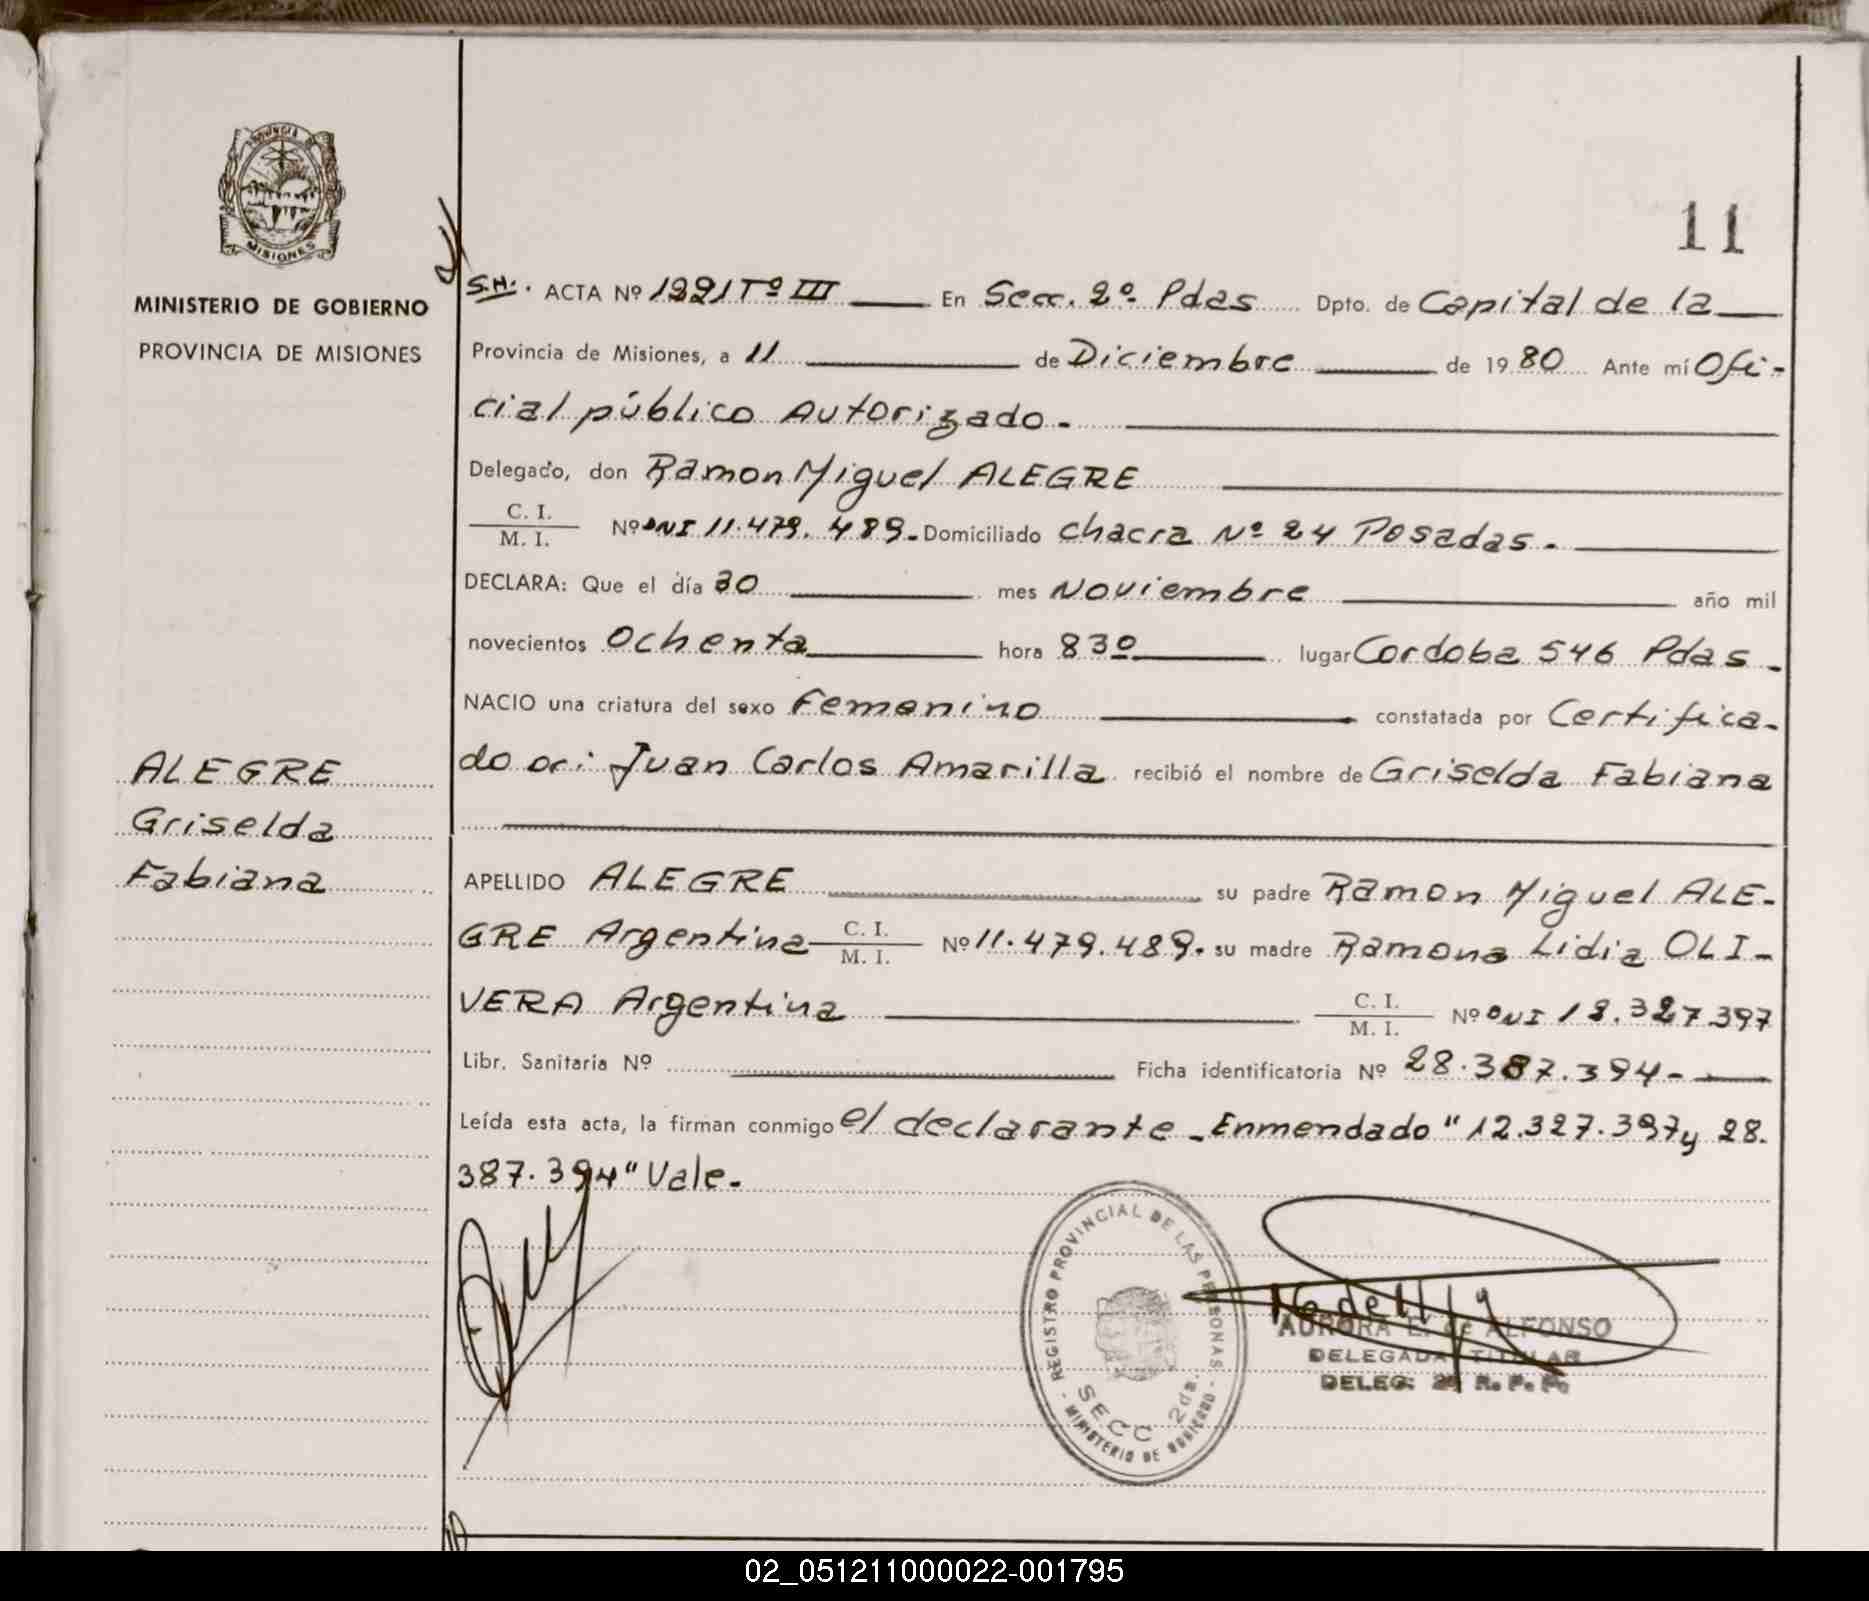 PROVINCIA DE
MISIONES
MINISTERIO DE GOBIERNO
PROVINCIA DE MISIONES
11
S.H.. ACTA Nº 1221 Tº III En Secc. 2º. Pdas Dpto. de Capital de la
Provincia de Misiones, a 11 de Diciembre de 19 80 Ante mí Ofi-
cial público Autorizado.
Delegado, don Ramon Miguel ALEGRE
C. I.
M. I. Nº DNI 11.479.489. Domiciliado chacra Nº 24 Posadas.
DECLARA: Que el día 30 mes Noviembre año mil
novecientos Ochenta hora 830 lugar Cordoba 546 Pdas.
NACIO una criatura del sexo Femenino constatada por Certifica-
do Juan Carlos Amarilla recibió el nombre de Griselda Fabiana
ALEGRE
Griselda
Fabiana
APELLIDO ALEGRE su padre Ramon Miguel ALE-
GRE Argentina C. I.
M. I. Nº 11.479.489. su madre Ramona Lidia OLI-
VERA Argentina C. I.
M. I. Nº DNI 12.327.397
Libr. Sanitaria Nº Ficha identificatoria Nº 28.387.394-
Leída esta acta, la firman conmigo el declarante - Enmendado "12.327.397 y 28.
387.394" Vale.
REGISTRO PROVINCIAL DE LAS PERSONAS
SECC 2da.
MINISTERIO DE GOBIERNO
AURORA E. de ALFONSO
DELEGADA TITULAR
DELEG: 2ª R. P. P.
02_051211000022-001795